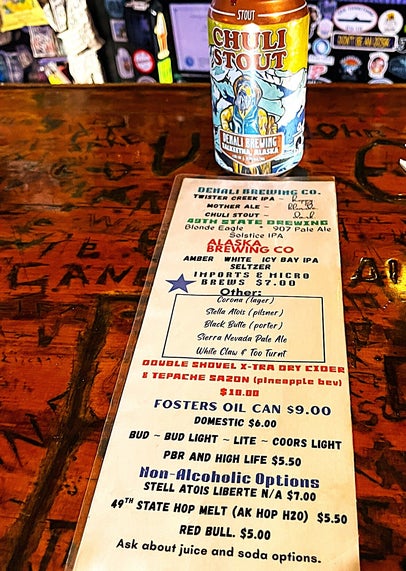 STOUT
CHULI
STOUT
DENALI BREWING
TALKEETNA, ALASKA
DENALI BREWING CO.
TWISTER CREEK IPA -
MOTHER ALE -
CHULI STOUT -
49TH STATE BREWING
Blonde Eagle * 907 Pale Ale
Solstice IPA
ALASKA
BREWING CO
AMBER WHITE ICY BAY IPA
SELTZER
IMPORTS & MICRO
BREWS $7.00
Other:
Corona (lager)
Stella Atois (pilsner)
Black Butte (porter)
Sierra Nevada Pale Ale
White Claw & Too Turnt
DOUBLE SHOVEL X-TRA DRY CIDER
& TEPACHE SAZON (pineapple bev)
$10.00
FOSTERS OIL CAN $9.00
DOMESTIC $6.00
BUD ~ BUD LIGHT ~ LITE ~ COORS LIGHT
PBR AND HIGH LIFE $5.50
Non-Alcoholic Options
STELL ATOIS LIBERTE N/A $7.00
49TH STATE HOP MELT (AK HOP H2O) $5.50
RED BULL. $5.00
Ask about juice and soda options.